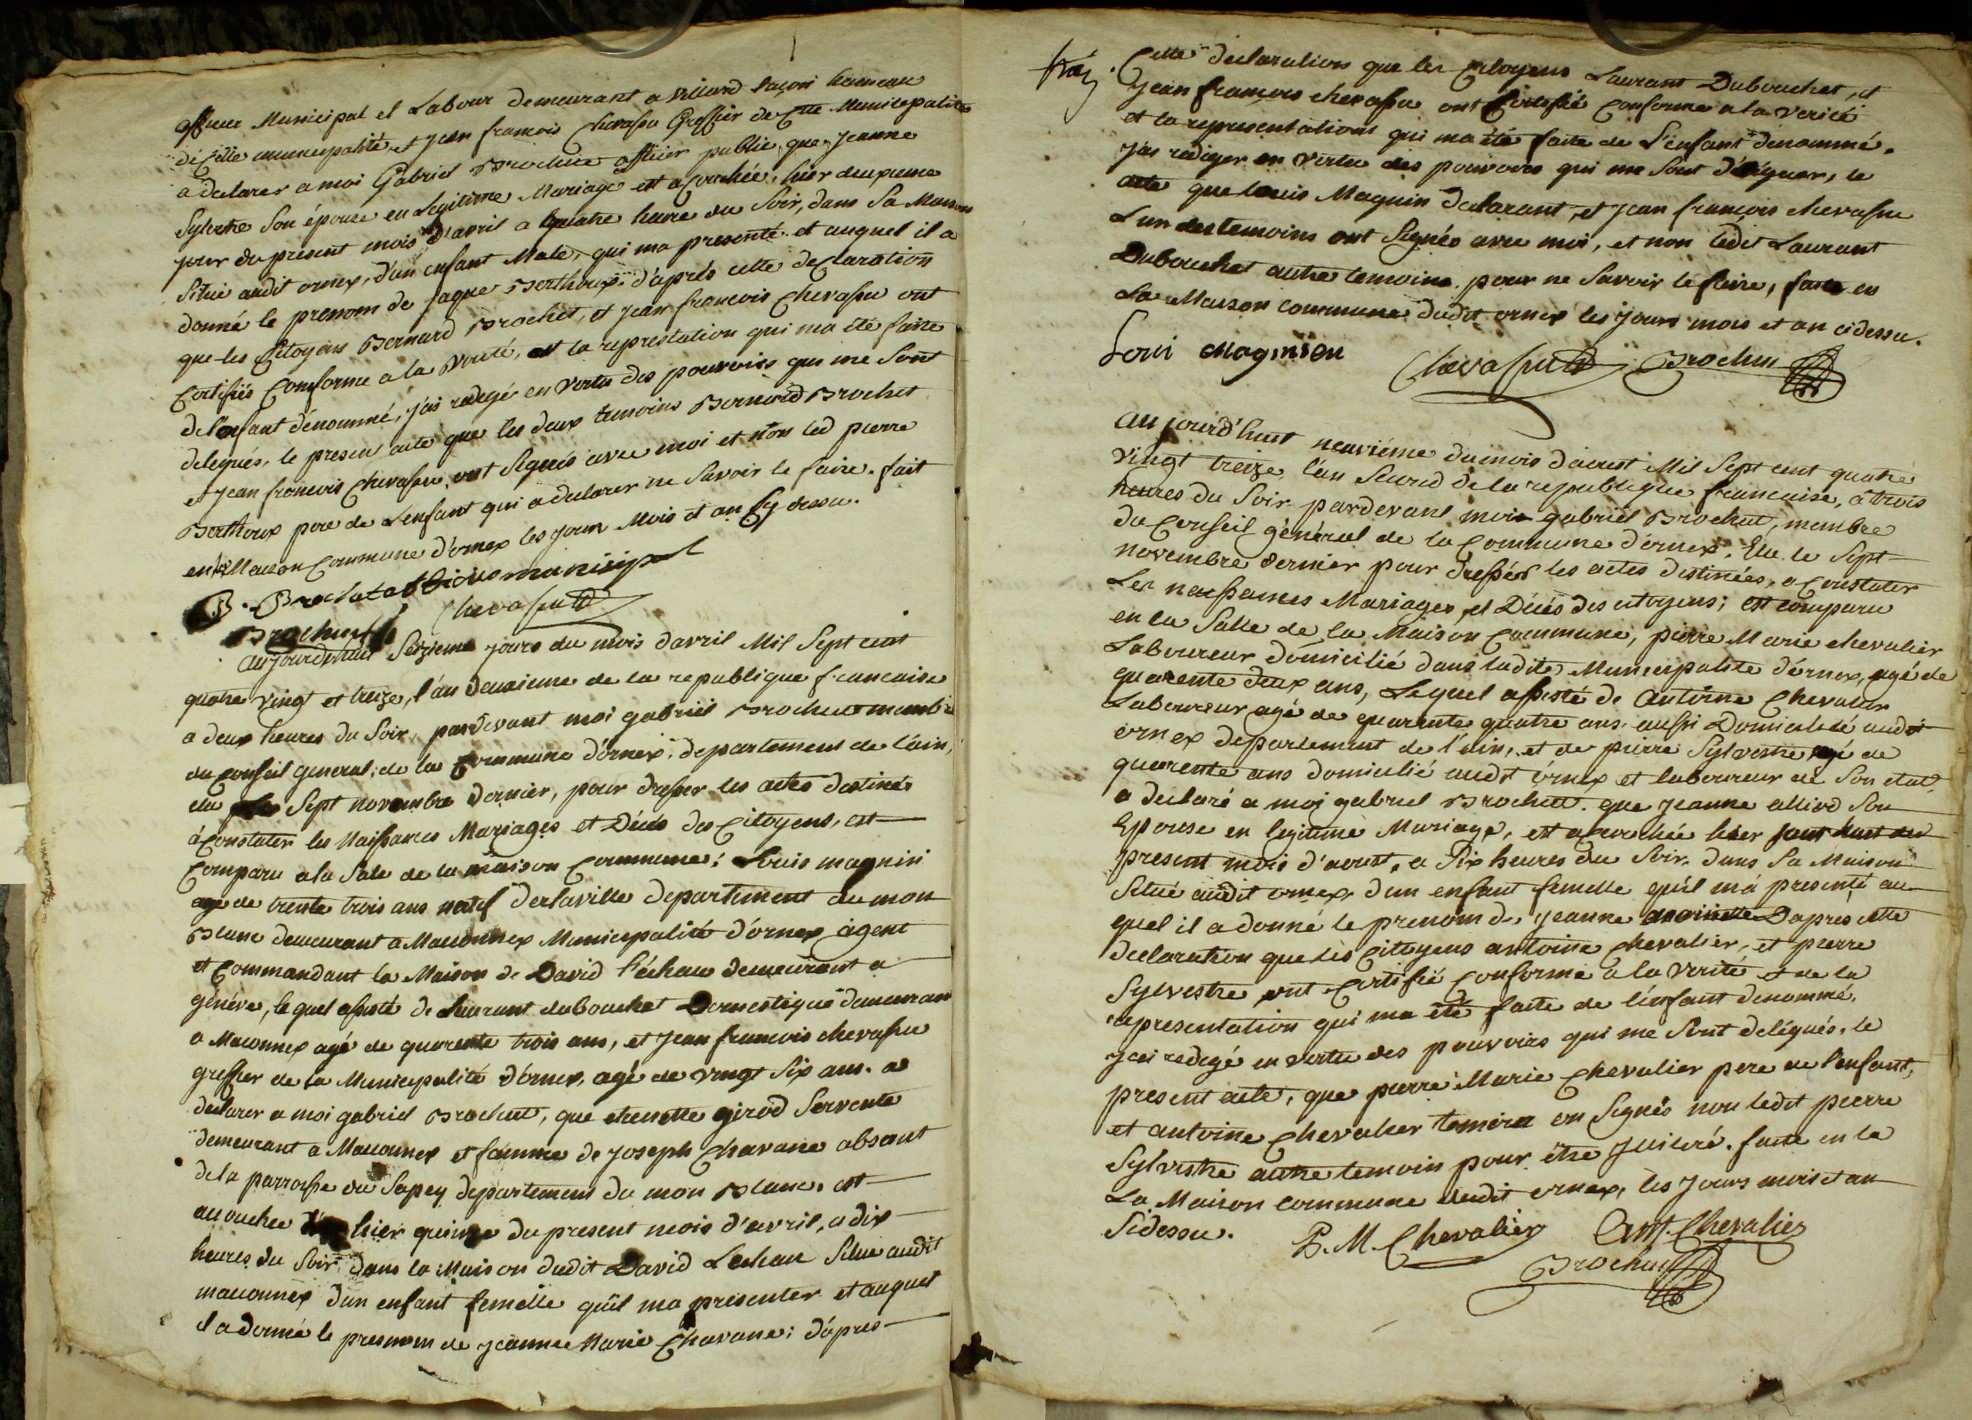 officier Municipal et Labour demeurant a Villard tacon hameau
de Cette municipalité et jean francois Chevassu Greffier de Cette Municipalité
a declarer a moi Gabriel Brochut officier public, que, jeanne
Sylvestre Son épouse en Legitime Mariage est acouchée, hier deuxieme
jour du present mois d'avril a quatre heure du Soir, dans Sa Maison
Situé audit ornex, d'un enfant Male, qui ma presenté et auquel il a
donné le prenom de jaque Berthoux: d'aprés cette declaration
que les Citoyens Bernard Brochet, et jean francois Chevassu ont
Certifiés Conforme a la Verité, et la represtation qui ma été faitte
de l'enfant dénommé, j'ai redigé en vertu des pouvoirs qui me Sont
delegués, le present acte que les deux temoins Bernard Brochet
et jean francois Chevassu ont Signés avec moi et non led pierre
Berthoux pere de L'enfant qui a declarer ne Savoir le faire. fait
en la Maison Commune d'ornex les jour Mois et an Cy dessu.
B. Brochet officie municipal
Brochut Chevassu
aujourdhuit Seizieme jours du mois davril Mil Sept cent
quatre vingt et treize, l'an deuxieme de la republique francaise
a deux heures du Soir, pardevant moi gabriel Brochut membre
du Conseil general, de la Commune d'ornex, departement de l'ain,
elu Sept novembre dernier, pour dresser les actes destinés
à Constater les Naissances Mariages et Décés des Citoyens, est
Comparu a la Sale de la maison Commune; Louis magnin
agé de trente trois ans natif derlaville departement du mon
Blanc demeurant a Maconnex Municipalité d'ornex agent
et Commandant la Maison de David Léchau demeurant a
généve, lequel assisté de Laurant dubouchet Domestique demeurant
a Maconnex agé de quarente trois ans, et jean francois chevassu
greffier de la Municipalité d'ornex, agé de vingt Six ans. a
declarer a moi gabriel Brochut, que etiennette girod Servente
demeurant a Maconnex et famme de joseph Chavane absent
de la parroisse du Sapey departement du mon Blanc, est
acouchee hier quinze du present mois d'avril, a dix
heures du Soir, dans la Maison dudit David Lechau Situe audit
maconnex d'un enfant femelle quil ma presenter et auquel
il a donné le presnom de jeanne Marie Chavane; d'apres
Cette declaration que les Citoyens Laurant Dubouchet, et
jean francois chevassu ont Certifié Conforme a la verité
et la representation qui ma été faite de L'enfant dénommé,
j'ai rediger en vertu des pouvoirs qui me Sont déléguer, le
acte que louis Magnin declarant, et jean francois chevassu
L'un des temoins ont Signés avec moi, et non ledit Laurant
Dubouchet autre temoine pour ne Savoir le faire, faite en
La Maison commune dudit ornex les jours mois et an cidessu.
Loui magnien Chevassu Brochut
aujourd'huit neuviéme du mois d'aoust Mil Sept cent quatre
Vingt treize l'an Second de la republique francaise, à trois
heures du Soir pardevant moi gabriel Brochut, membre
du Conseil général de la Commune d'ornex. Elu le Sept
novembre dernier pour dresser les actes destinées, a Constater
Les naissances Mariages, et Décés des citoyens; est comparu
en la Salle de la Maison Commune, pierre Marie chevalier
Laboureur domicilié dans ladite Municipalité d'ornex, agé de
quarente deux ans, Lequel assisté de antoine Chevalier
Laboureur agé de quarente quatre ans aussi Domicilié audit
ornex departement de l'ain, et de pierre Sylvestre agé de
quarente ans domicilié audit ornex et laboureur de Son etat,
a declaré a moi gabriel Brochut. que jeanne alliod Son
Epouse en legitime Mariage, est acouchée hier jour huit du
present mois d'aoust, a Six heures du Soir. dans Sa Maison
Situé audit ornex, d'un enfant femelle qu'il m'a presenté au
quel il a donné le prenom de, jeanne Dapres cette
declaration que les Citoyens antoine Chevalier, et pierre
Sylvestre ont Certifié Conforme à la Verité de la
representation qui ma été faite de l'enfant denommé,
j'ai redigé en vertu des pouvoirs qui me Sont delégués, le
present acte, que pierre Marie Chevalier pere de l'enfant,
et antoine Chevalier temoin on Signés non ledit pierre
Sylvestre autre temoin pour être faite en la
La Maison commune dudit ornex, les jours mois et an
Sidessu. P. M. Chevalier Ant. Chevalier
Brochut